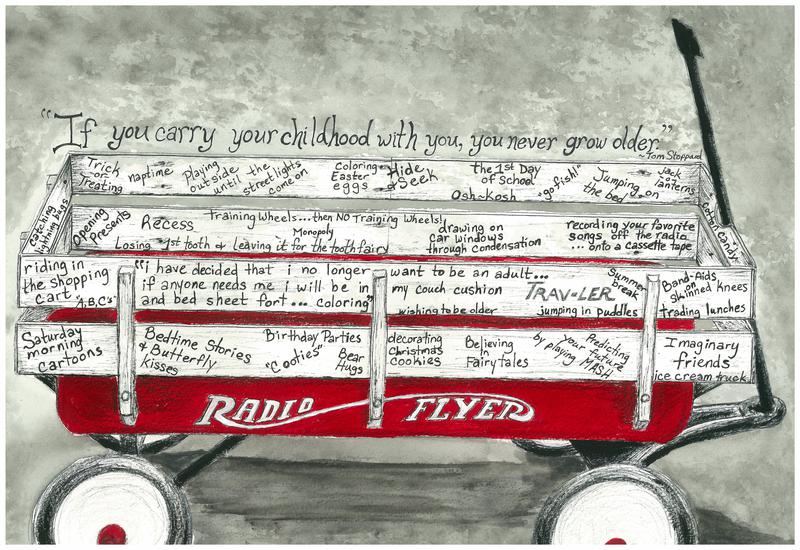 “If you carry your childhood with you, you never grow older.”
~Tom Stoppard
Trick
or
Treating
naptime
Playing
outside
until the
streetlights
come on
Coloring
Easter
eggs
Hide
& Seek
The 1st Day
of School
Osh-kosh
"go fish!"
Jumping on
the bed
Jack
-o-
lanterns
Catching
lightning bugs
Opening
Presents
Recess
Training Wheels...then NO Training Wheels!
Monopoly
Losing 1st tooth & leaving it for the tooth fairy
drawing on
car windows
through condensation
recording your favorite
songs off the radio
... onto a cassette tape
Cotton Candy
riding in
the shopping
cart
"A,B,C's"
“i have decided that i no longer want to be an adult...
if anyone needs me i will be in my couch cushion
and bed sheet fort... coloring”
wishing to be older
TRAV-LER
jumping in puddles
Summer
break
Band-Aids
on
skinned Knees
trading lunches
Saturday
morning
Cartoons
Bedtime Stories
& Butterfly
Kisses
Birthday Parties
"Cooties"
Bear
Hugs
decorating
Christmas
Cookies
Believing
in
Fairytales
Predicting
your future
by playing MASH
Imaginary
friends
ice cream truck
RADIO FLYER